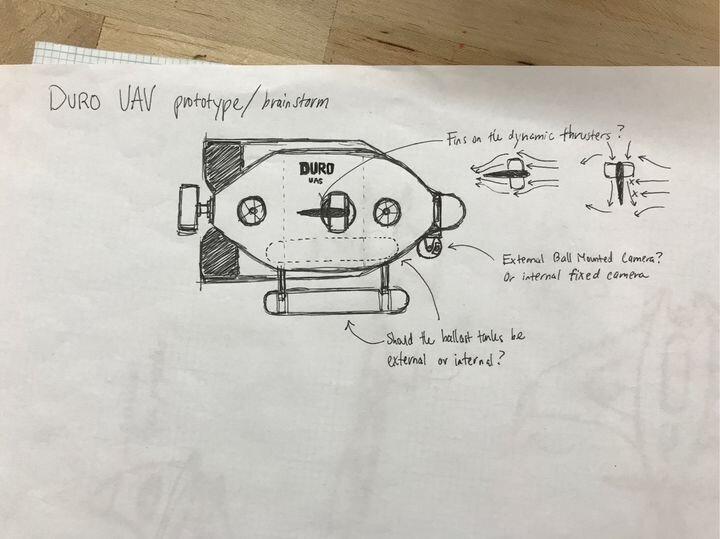 DURO UAV prototype/brainstorm
Fins on the dynamic thrusters?
DURO
UAS
External Ball Mounted Camera?
Or internal fixed camera
Should the ballast tanks be
external or internal?